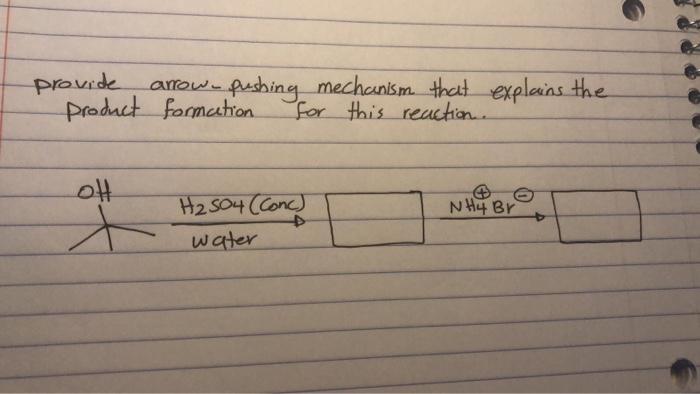 provide arrow-pushing mechanism that explains the
product formation for this reaction.
OH
H2SO4 (Conc)
water
NH4 Br
⊕ ⊖